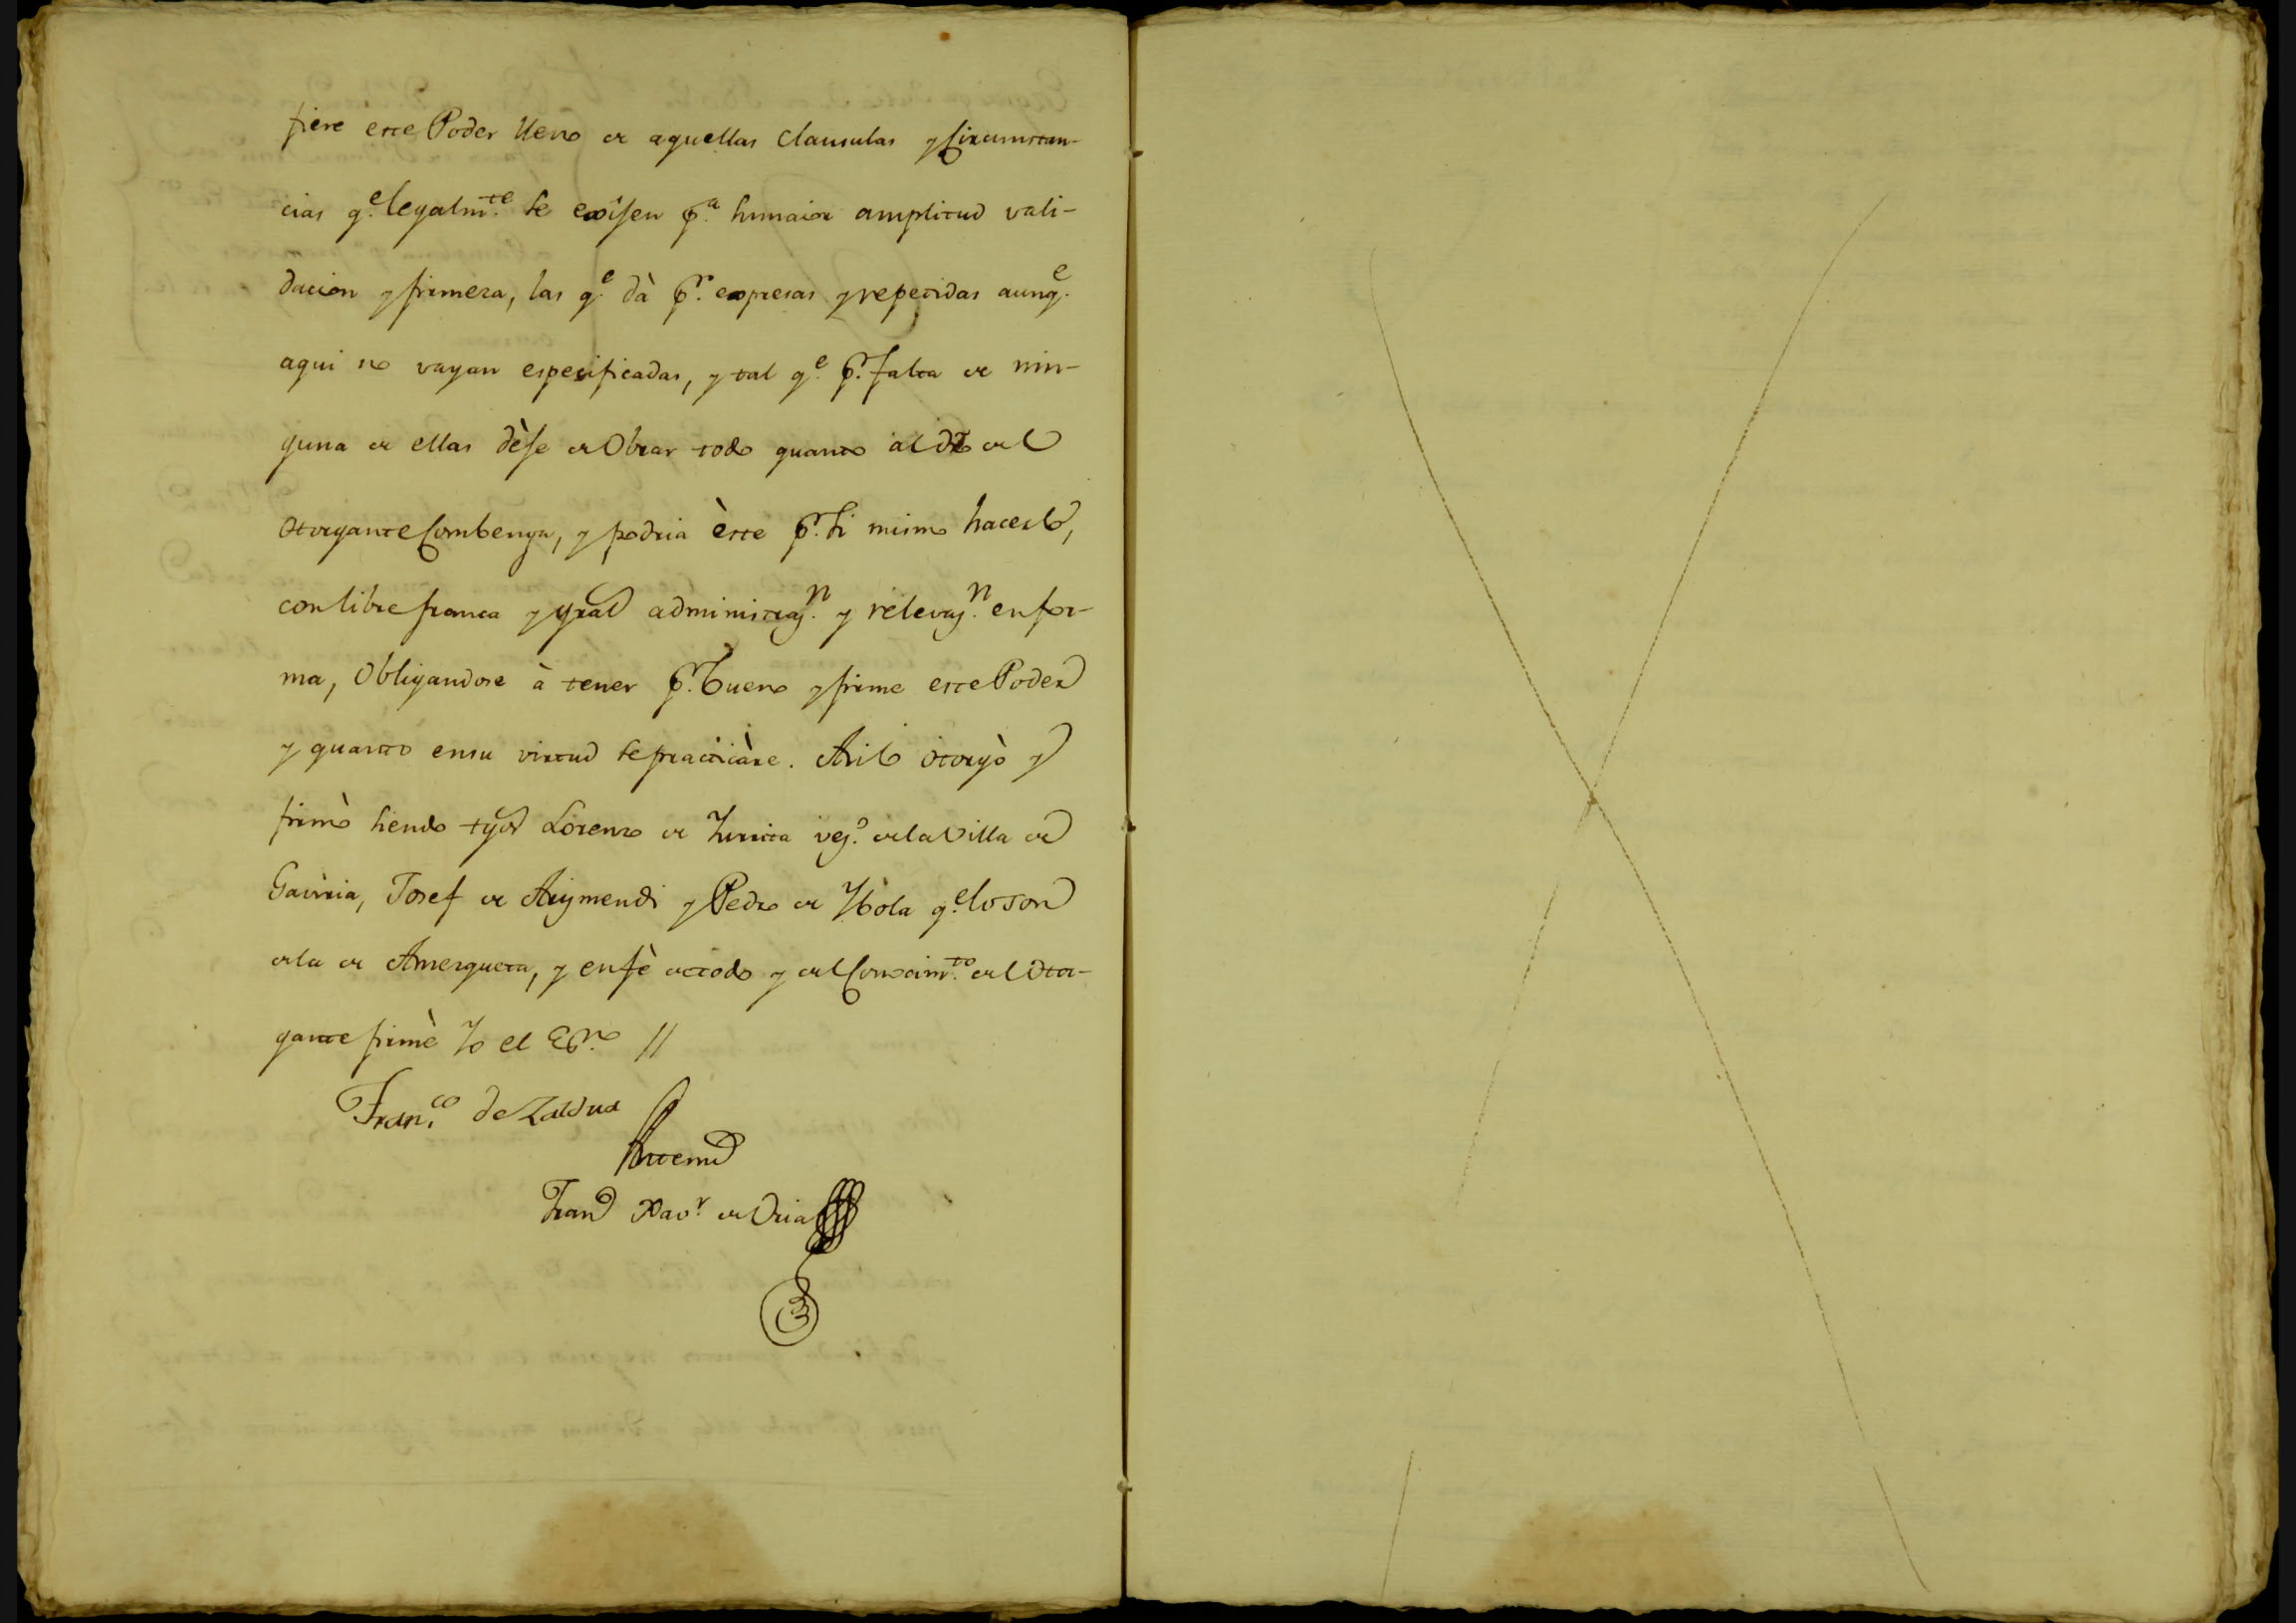 fiere este Poder lleno de aquellas clausulas y Circunstan-
cias q.e legalm.te se exijen p.a su maior amplitud vali-
dacion y firmeza, las q.e dà p.r expresas y repetidas aunq.e
aqui no vayan especificadas, y tal q.e p.r falta de nin-
guna de ellas dèje de Obrar todo quanto al dro del
Otorgante Combenga, y podria èste p.r si mismo hacerlo,
con libre franca y gral administraz.n y relevaz.n en for-
ma, Obligandose à tener p.r bueno y firme este Poder
y quanto en su virtud se practicàre. Asi lo otorgò y
firmò siendo tgos Lorenzo de Zurita vez.o de la Villa de
Gaviria, Josef de Arizmendi y Pedro de Ybola q.e lo son
de la de Amezqueta, y en fè de todo y del Conocim.to del Otor-
gante firmè Yo el Esno //
Fran.co de Zaldua
Antemi
Franco Xav.r de Oria